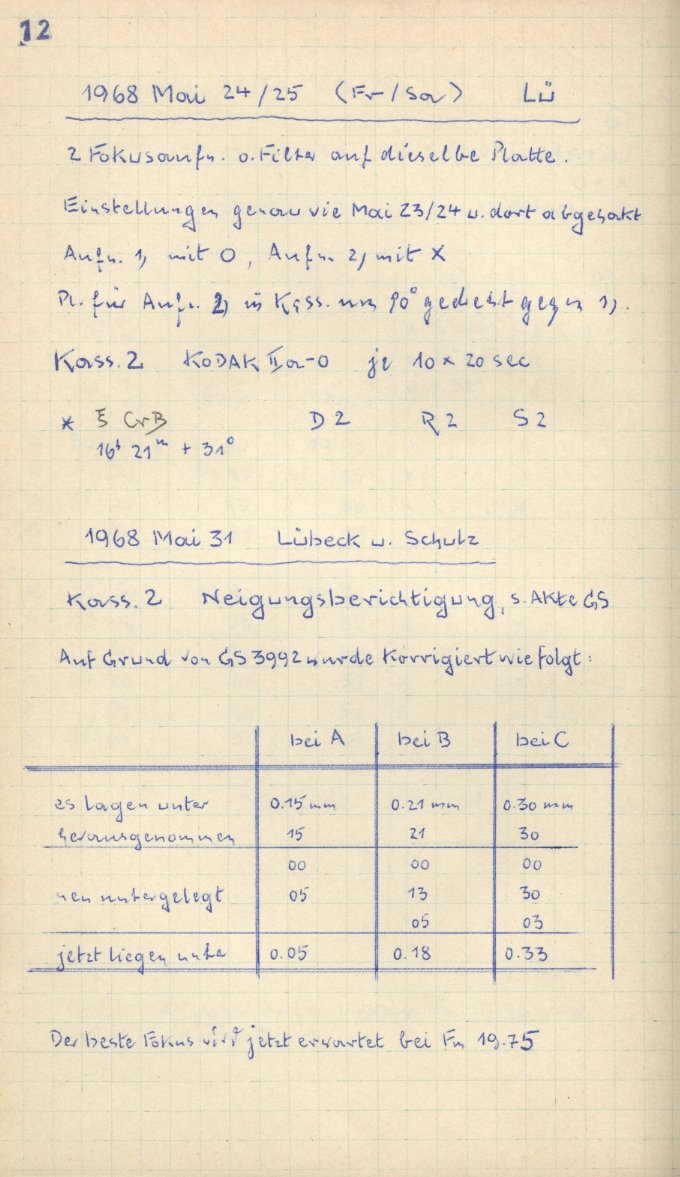 12
1968 Mai 24/25 (Fr/Sa) Lü
2 Fokusaufn. o. Filter auf dieselbe Platte.
Einstellungen genau wie Mai 23/24 u. dort abgehakt
Aufn. 1) mit O, Aufn. 2) mit X
Pl. für Aufn. 2) in Kass. um 90° gedreht gegen 1).
Kass. 2 KODAK IIa-O je 10 x 20 sec
* ξ CrB D2 R2 S2
16h 21m + 31°
1968 Mai 31 Lübeck u. Schulz
Kass. 2 Neigungsberichtigung, s. Akte GS
Auf Grund von GS 3992 wurde korrigiert wie folgt:
bei A bei B bei C
es lagen unter 0.15 mm 0.21 mm 0.30 mm
herausgenommen 15 21 30
00 00 00
neu untergelegt 05 13 30
05 03
jetzt liegen unter 0.05 0.18 0.33
Der beste Fokus wird jetzt erwartet bei Fm 19.75